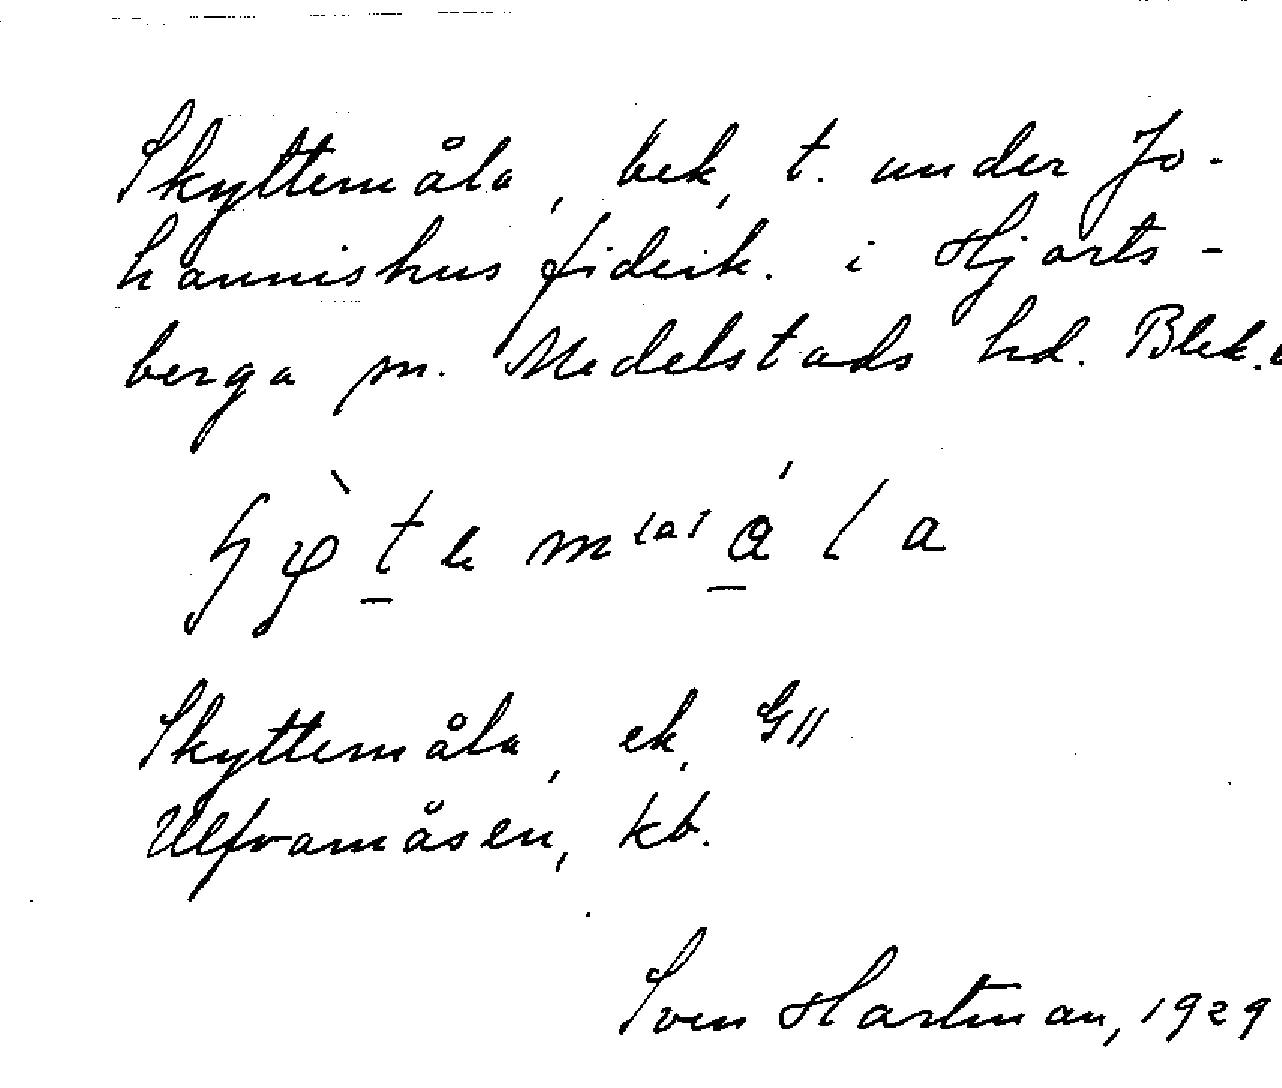 Skyttemåla, bek, t. under Jo-
hannishus fideik. i Hjorts-
berga sn. Medelstads hd. Blek.
Skyttemåla, ek, G11
Ulfvamåsen, kb.
Sven Hartman, 1929